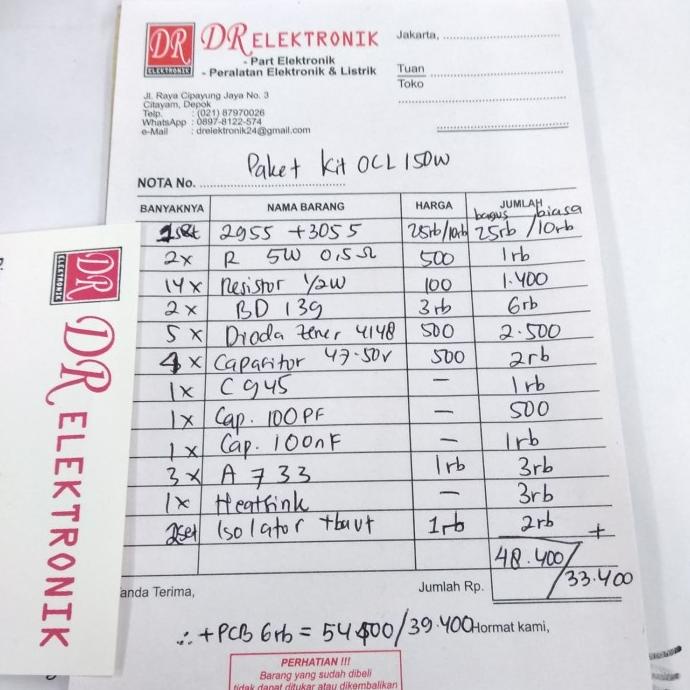 DR
ELEKTRONIK
DR ELEKTRONIK
- Part Elektronik
- Peralatan Elektronik & Listrik
Jl. Raya Cipayung Jaya No. 3
Citayam, Depok
Telp. : (021) 87970026
WhatsApp : 0897-8122-574
e-Mail : drelektronik24@gmail.com
Jakarta,
Tuan
Toko
Paket Kit OCL 150W
NOTA No.
BANYAKNYA NAMA BARANG HARGA JUMLAH
bagus biasa
1set 2955 +3055 25rb/10rb 25rb /10rb
2x R 5W 0,5Ω 500 1rb
14x Resistor 1/2W 100 1.400
2x BD 139 3rb 6rb
5x Dioda zener 4148 500 2.500
4x Capasitor 47.50v 500 2rb
1x C945 — 1rb
1x Cap. 100PF — 500
1x Cap. 100nF — 1rb
3x A733 1rb 3rb
1x Heatsink — 3rb
2set Isolator +baut 1rb 2rb +
48.400/33.400
anda Terima, Jumlah Rp.
∴ +PCB 6rb = 54400/39.400
Hormat kami,
PERHATIAN !!!
Barang yang sudah dibeli
tidak dapat ditukar atau dikembalikan
DR
ELEKTRONIK
DR ELEKTRONIK